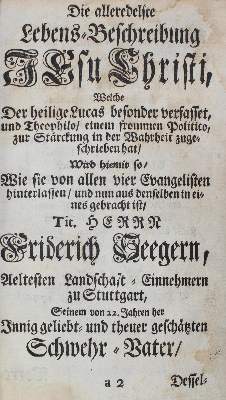 Die alleredelste
Lebens-Beschreibung
JEsu Christi,
Welche
Der heilige Lucas besonder verfasset,
und Theophilo/ einem frommen Politico,
zur Stärckung in der Wahrheit zuge-
schrieben hat/
Wird hiemit so/
Wie sie von allen vier Evangelisten
hinterlassen/ und nun aus denselben in ei-
nes gebracht ist/
Tit. HERRN
Friderich Heegern,
Aeltesten Landschafft-Einnehmern
zu Stuttgart,
Seinem von 22. Jahren her
Innig geliebt- und theuer geschätzten
Schwehr-Vater/
a 2
Dessel-